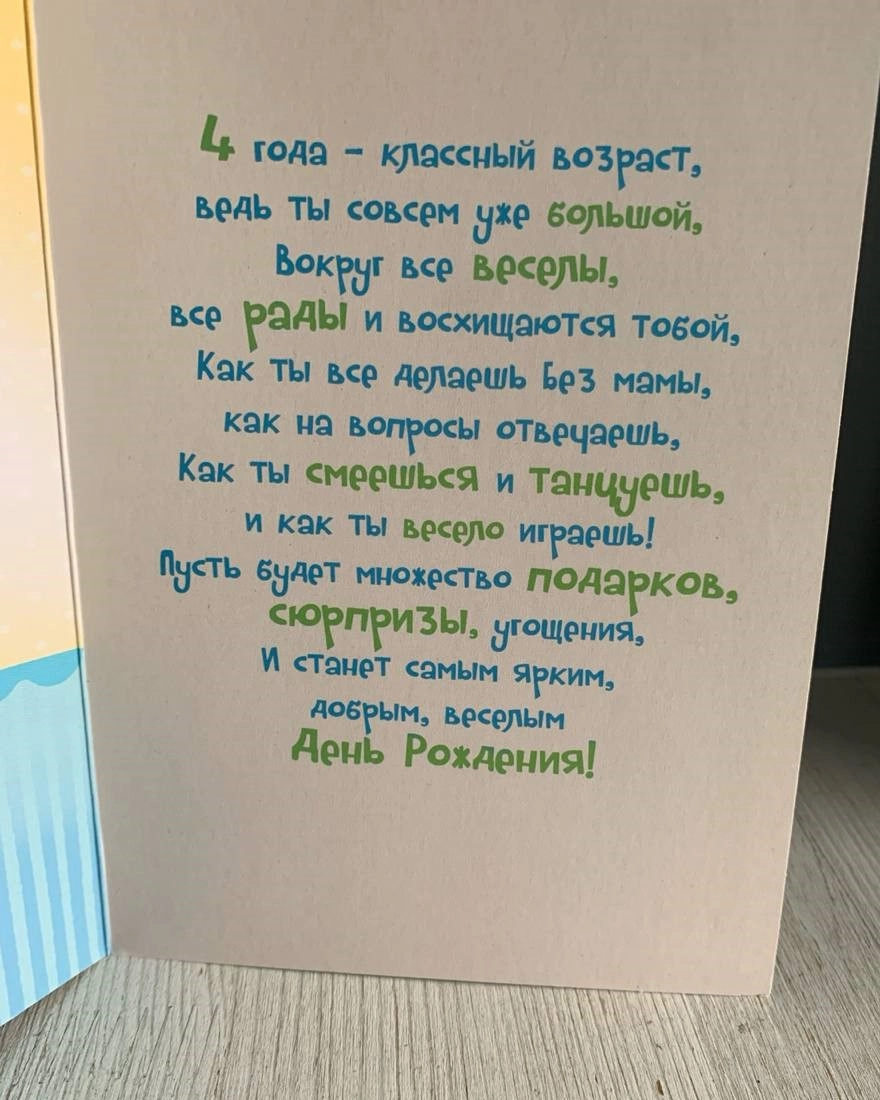 4 года - классный возраст,
ведь ты совсем уже большой,
Вокруг все веселы,
все рады и восхищаются тобой,
Как ты все делаешь без мамы,
как на вопросы отвечаешь,
Как ты смеешься и танцуешь,
и как ты весело играешь!
Пусть будет множество подарков,
сюрпризы, угощения,
И станет самым ярким,
добрым, веселым
День Рождения!